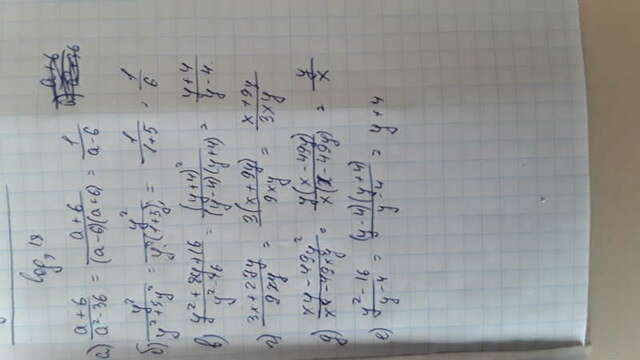 log₃ 18
а) (a+6)/(a²-36) = (a+6)/((a-6)(a+6)) = 1/(a-6)
б) y²/(y²+5y²) = y²/(y²(1+5)) = 1/(1+5) = 1/6
в) (y²+8y+16)/(y²-16) = (y+4)²/((y-4)(y+4)) = (y+4)/(y-4)
г) (3x+27y)/(9xy) = 3(x+9y)/(9xy) = (x+9y)/(3xy)
д) (xy-49y²)/(x²-49xy) = y(x-49y)/(x(x-49y)) = y/x
е) (y²-16)/(y-4) = (y-4)(y+4)/(y-4) = y+4